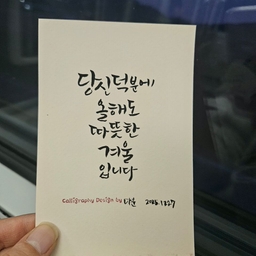 당신덕분에
올해도
따뜻한
겨울
입니다
Calligraphy Design by